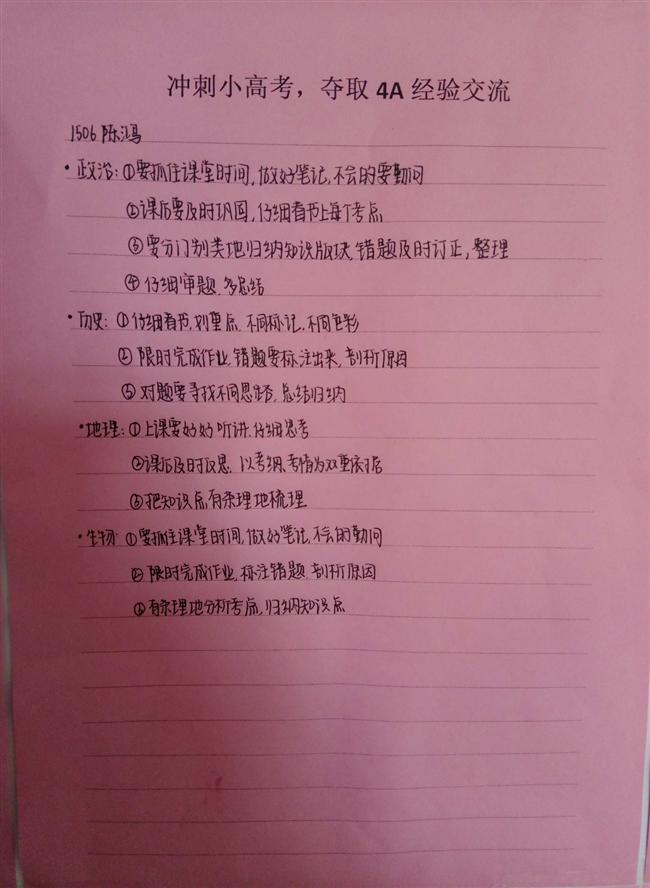 冲刺小高考，夺取 4A 经验交流
1506 陈鸿
·政治：①要抓住课堂时间，做好笔记，不会的要勤问
②课后要及时巩固，仔细看书上每个考点
③要分门别类地归纳知识版块，错题及时订正，整理
④仔细审题，多总结
·历史：①仔细看书，划重点，不同标记，不同色彩
②限时完成作业，错题要标注出来，剖析原因
③对题要寻找不同思路，总结归纳
·地理：①上课要好好听讲，仔细思考
②课后及时反思，以考纲、考情为双重依据
③把知识点有条理地梳理
·生物：①要抓住课堂时间，做好笔记，不会的勤问
②限时完成作业，标注错题，剖析原因
③有条理地分析考点，归纳知识点